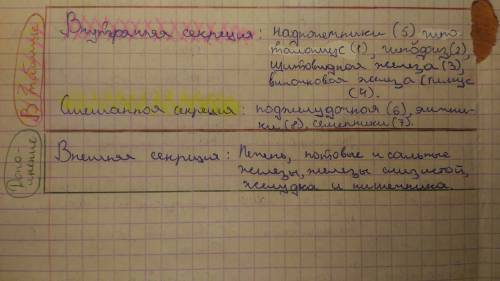 В таблице
Внутренняя секреция: Надпочечники (5) гипо-
таламус (1), гипофиз (2),
щитовидная железа (3)
вилочковая железа (тимус
(4).
Смешанной секреция: поджелудочная (6), яични-
ки (8), семенники (7).
Допо-
лнение
Внешняя секреция: Печень, потовые и сальные
железы, железы слизистой,
желудка и кишечника.